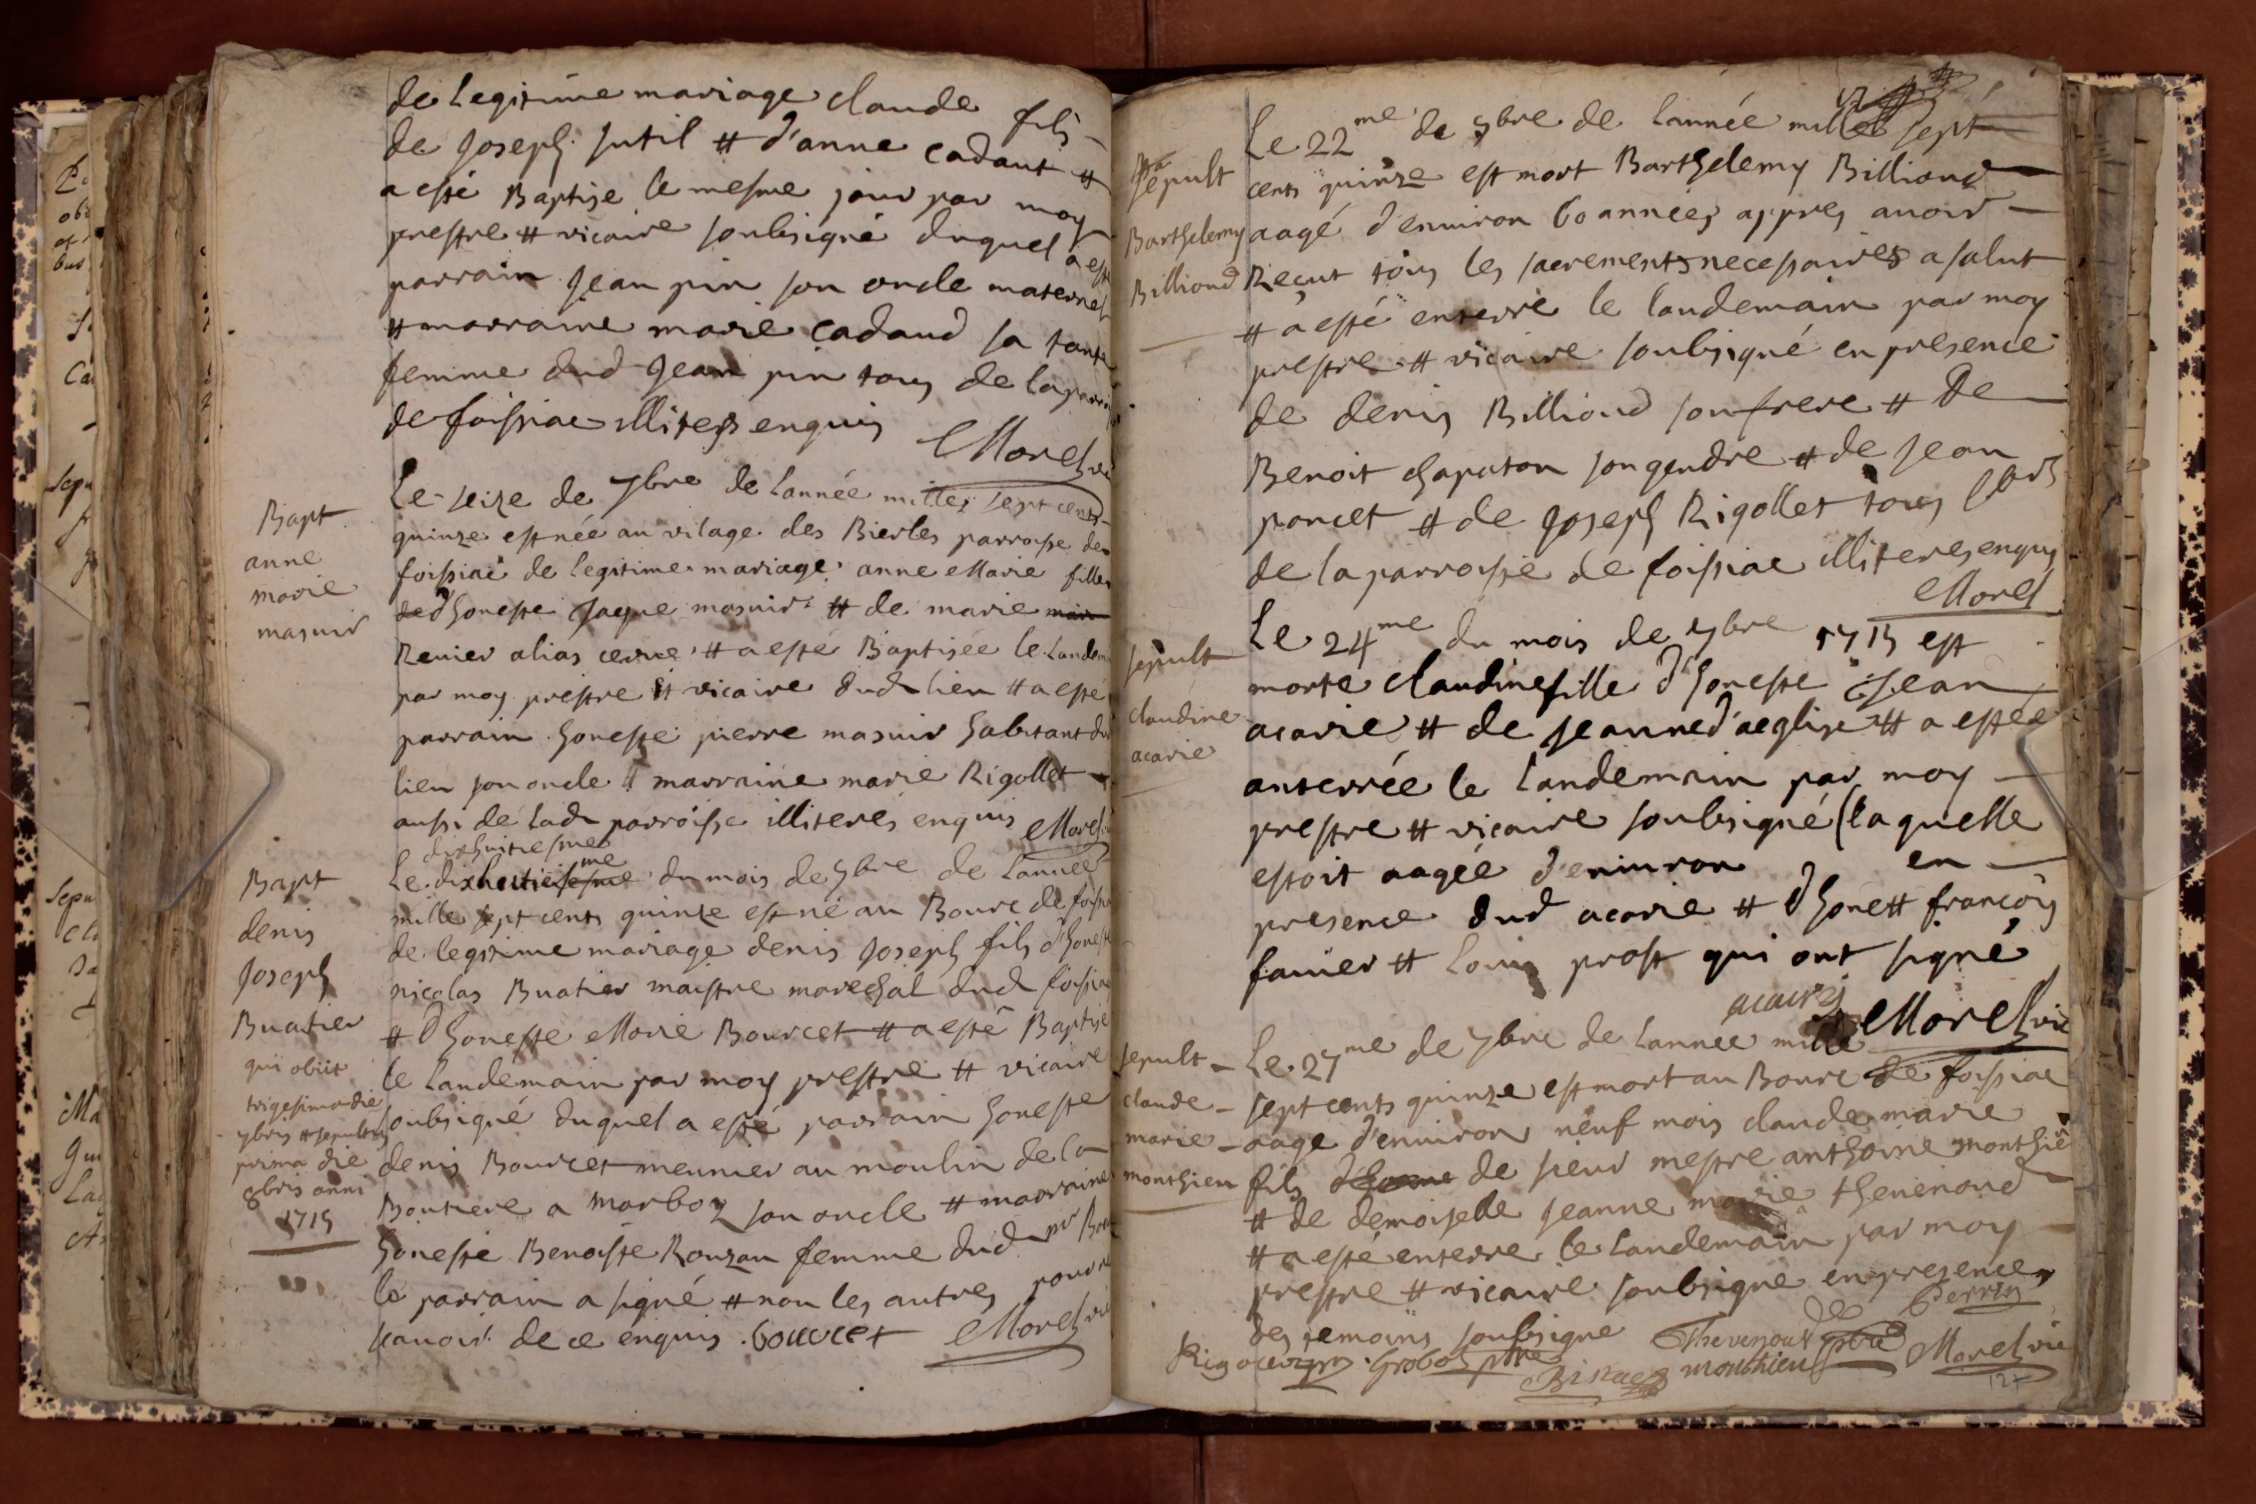 de legitime mariage claude fils
de Joseph sutil # d'anne cadant #
a esté Baptise le mesme jour par moy
prestre # vicaire soubsigné duquel a esté
parrain Jean pin son oncle maternel
# marraine marie cadaud sa tante
femme dud Jean pin tous de la parroisse
de foissiac illiterés enquis
Morel vic
Bapt
anne
marie
masuir
Le seize de 7bre de lannée milles sept cents
quinze est née au vilage des Bierles parroisse de
foissiac de legitime mariage anne Marie fille
de d'honeste Jaque masuir # de marie
Renier alias cerve # a esté Baptisée le landemain
par moy prestre # vicaire dud lieu # a esté
parrain honeste pierre masuir habitant dud
lieu son oncle # marraine marie Rigollet
aussi de lad parroisse illiterés enquis Morel
dixhuitiesme
Bapt
denis
Joseph
Buatier
qui obiit
trigesima die
7bris # sepultus
prima die
8bris anni
1715
Le dixhuitiesme du mois de 7bre de lannée
mille sept cents quinze est né au Bourc de foissiac
de legitime mariage denis Joseph fils d'honeste
nicolas Buatier maistre marechal dud foissiac
# d'honeste Marie Bourcet # a esté Baptisé
le landemain par moy prestre # vicaire
soubsigné duquel a esté parrain honeste
denis Bourcet meunier au moulin de la
Boutiere a marboz son oncle # marraine
honeste Benoiste Rouzau femme dud
le parrain a signé # non les autres pour ne
scavoir de ce enquis. bourcet Morel vic
sepult
Barthelemy
Billioud
Le 22me de 7bre de lannée milles sept
cents quinze est mort Barthelemy Billioud
aagé d'environ 60 années appres avoir
Reçut tous les sacrements necessaires a salut
# a esté enterré le landemain par moy
prestre # vicaire soubsigné en presence
de denis Billioud son frere # de
Benoit chapaton son gendre # de Jean
poncet # de Joseph Rigollet tous
de la parroisse de foissiac illiteres enquis
Morel
sepult
claudine
acarie
Le 24me du mois de 7bre 1715 est
morte claudine fille d'honeste Jean
acarie # de jeanne d'aeglise # a estée
anterrée le landemain par moy
prestre # vicaire soubsigné (laquelle
estoit aagée d'environ en
presence dud acarie # d'hone# françois
favier # Louis prost qui ont signé
acarie Morel vic
sepult
claude
marie
monthieu
Le 27me de 7bre de lannée mille
sept cents quinze est mort au Bourc de foissiac
aage d'environ neuf mois claude marie
fils de sieur mestre anthoine monthieu
# de demoiselle jeanne marie thevenoud
# a esté enterre le landemain par moy
prestre # vicaire soubsigne en presence
des temoins soubsigne
Perrin
Thevenoux
Grobo ptre
monthieu
Morel vic